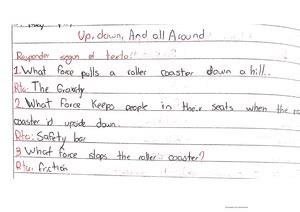 Up, down, And all Around
Responder segun el texto:
1. What force polls a roller coaster down a hill..
Rta: The Gravity
2. What force keeps people in their seats when the ro
coaster is upside down.
Rta: Safety bar
3 What force stops the roller coaster?
Rta: friction